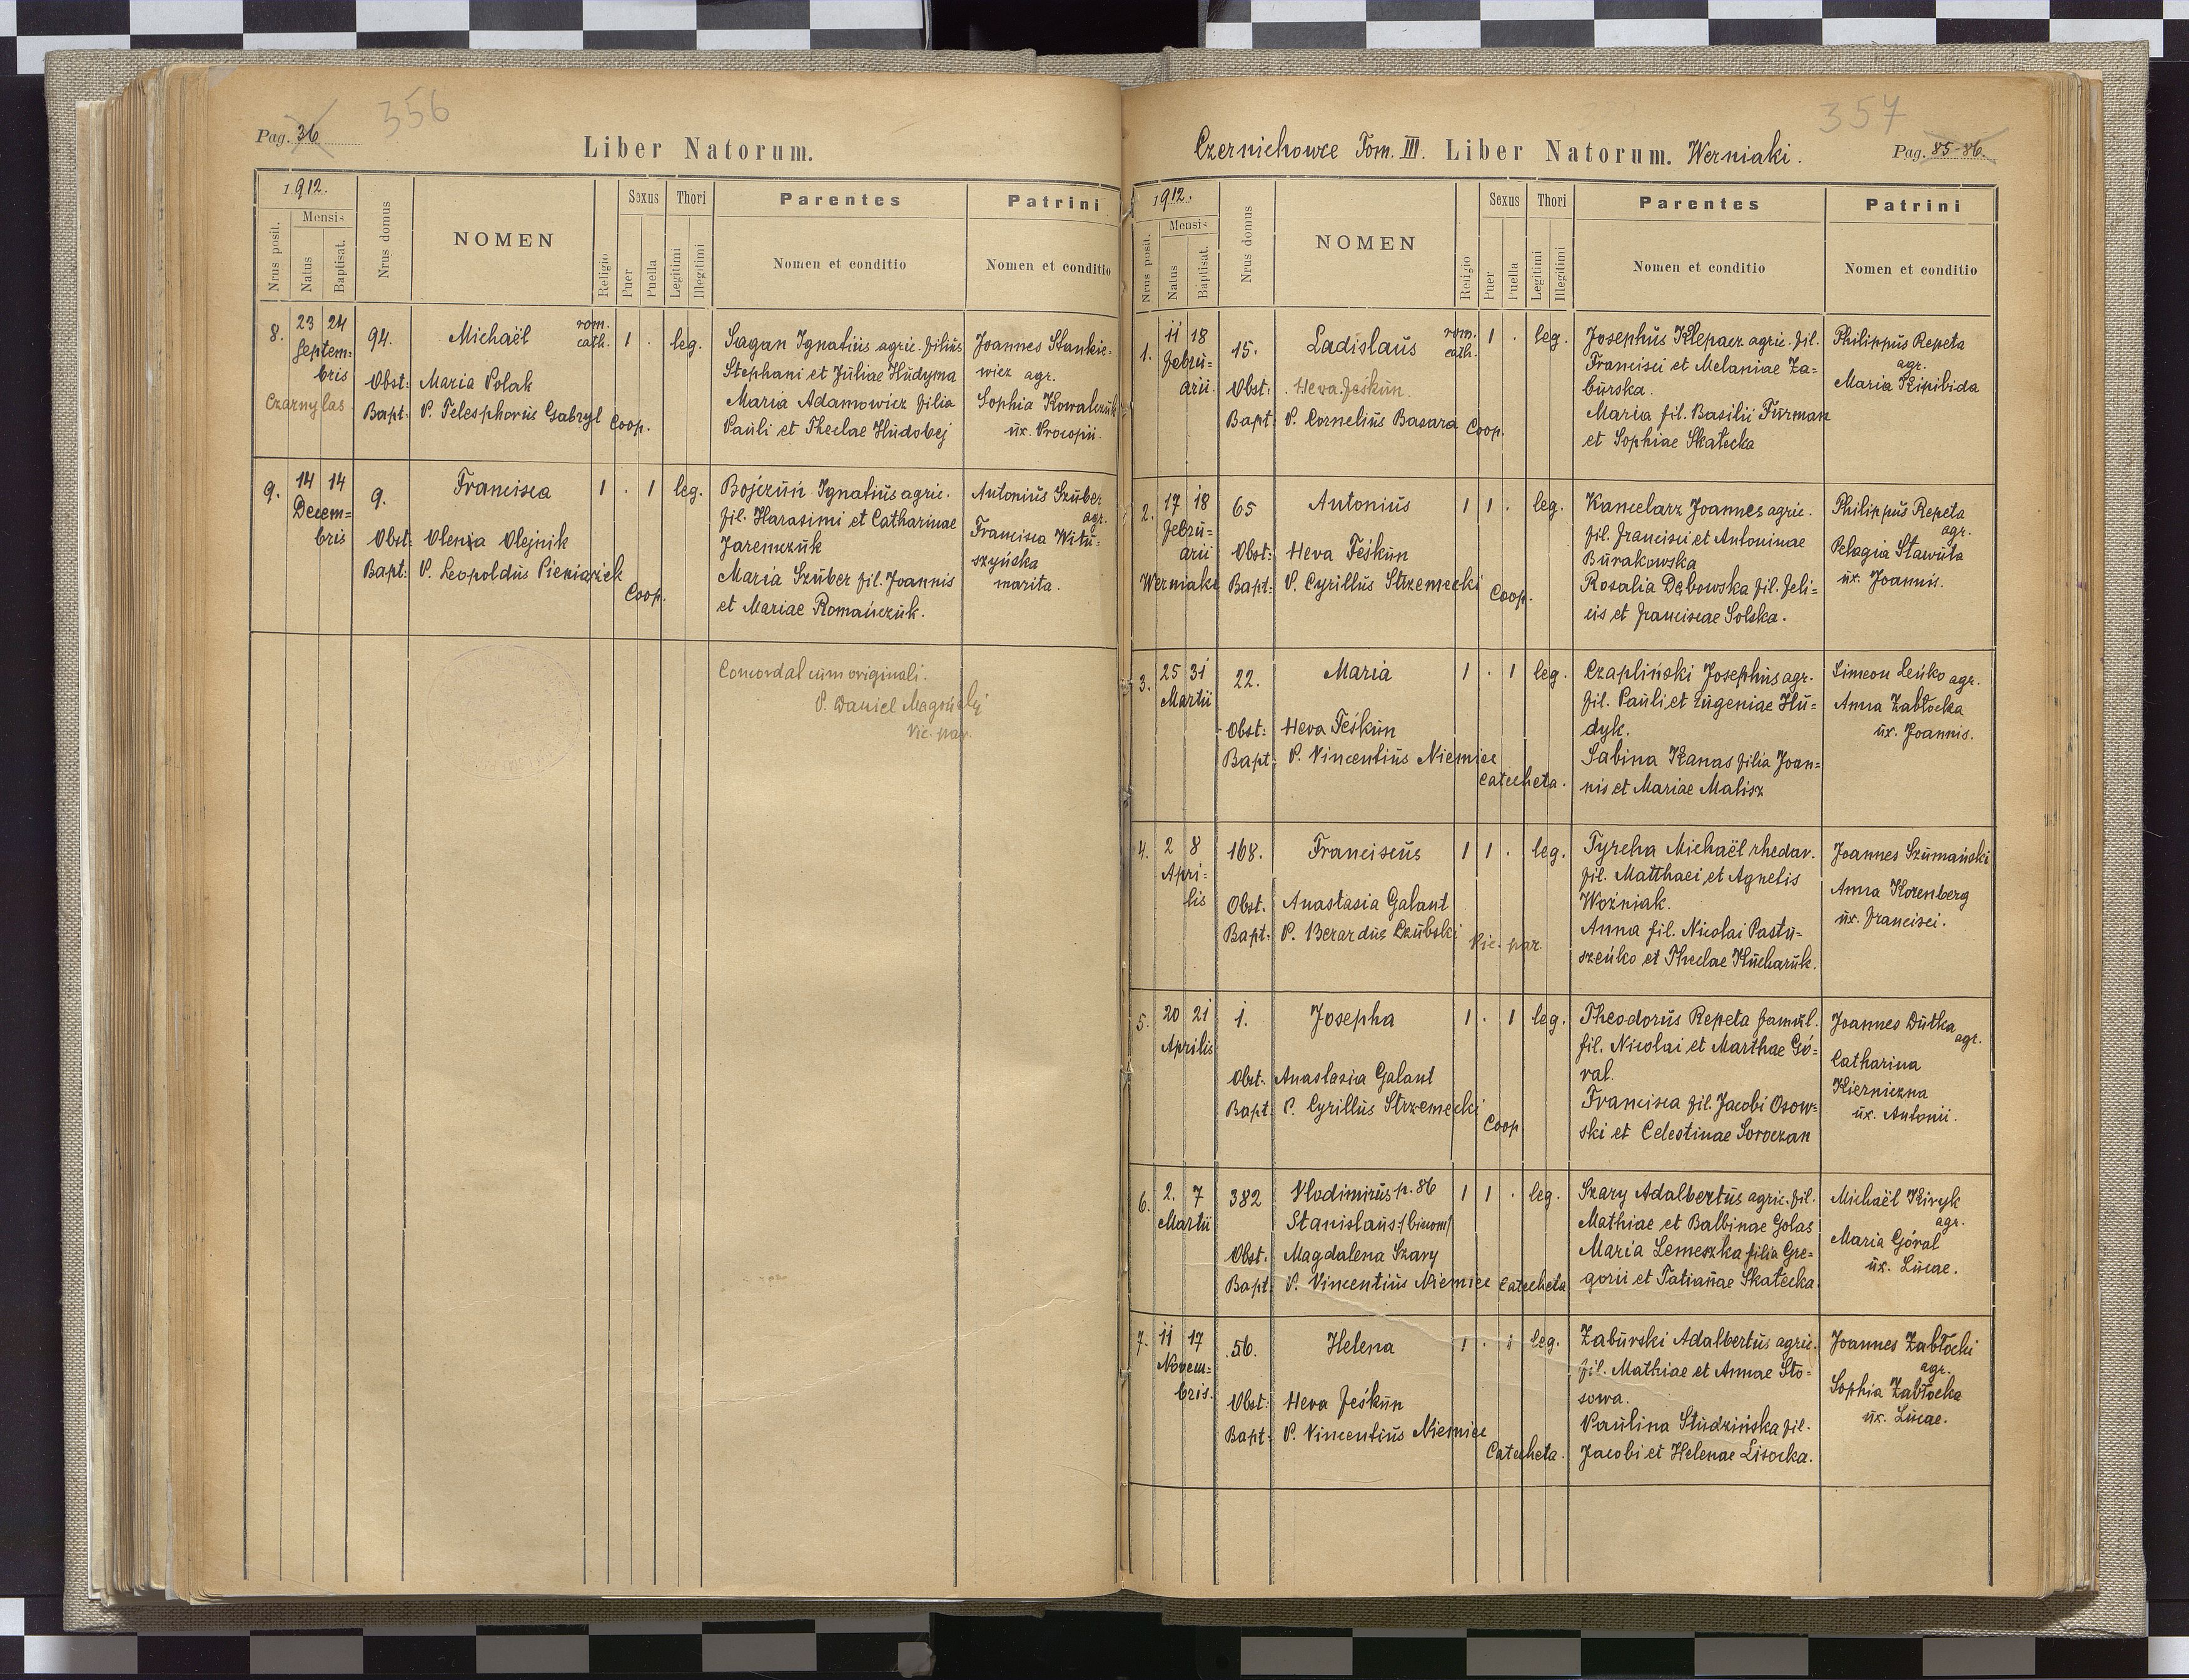 356
Pag. 36
Liber Natorum.
1912.
Nrus posit.
Mensis
Natus
Baptisat.
Nrus domus
NOMEN
Religio
Sexus
Puer
Puella
Thori
Legitimi
Illegitimi
Parentes
Nomen et conditio
Patrini
Nomen et conditio
8. 23 24 Septem=
bris
Czarnylas
94. Michaël rom. cath. 1 . leg.
Obst: Maria Polak
Bapt: P. Telesphorus Gabryl Coop.
Sagan Ignatius agric. filius
Stephani et Juliae Hudyma
Maria Adamowicz filia
Pauli et Theclae Hudobej
Joannes Stankie=
wicz agr.
Sophia Kowalczuk
ux. Procopii
9. 14 14 Decem=
bris
9. Francisca 1 . 1 leg.
Obst: Olena Olejnik
Bapt: P. Leopoldus Pieniążek
Coop.
Bojczun Ignatius agric.
fil. Harasimi et Catharinae
Jaremczuk
Maria Szuber fil. Joannis
et Mariae Romańczuk.
Antonius Szuber
agr.
Francisca Witu=
szyńska
marita.
Concordat cum originali.
P. Daniel
Vic. par.
357
Czernichowce Tom. III. Liber Natorum. Werniaki.
Pag. 85-86.
1912.
Nrus posit.
Mensis
Natus
Baptisat.
Nrus domus
NOMEN
Religio
Sexus
Puer
Puella
Thori
Legitimi
Illegitimi
Parentes
Nomen et conditio
Patrini
Nomen et conditio
1. 11 18
Febru=
arii
15. Ladislaus rom. cath. 1 . leg.
Obst: Heva Feśkun
Bapt: P. Cornelius Basara Coop.
Josephus Klepacz agric. fil.
Francisci et Melaniae Za=
burska.
Maria fil. Basilii Furman
et Sophiae Skatecka
Philippus Repeta
agr.
Maria Kipibida
2. 17 18
Febru=
arii
Werniaki
65 Antonius 1 1 . leg.
Obst: Heva Feśkun
Bapt: P. Cyrillus Strzemecki
Coop.
Kancelarz Joannes agric.
fil. Francisci et Antoninae
Burakowska
Rosalia Dębowska fil. Feli=
cis et Franciscae Solska.
Philippus Repeta
agr.
Pelagia Stawuta
ux. Joannis.
3. 25 31
Martii
22. Maria 1 . 1 leg.
Obst: Heva Feśkun
Bapt: P. Vincentius Niemiec
Catecheta.
Czapliński Josephus agr.
fil. Pauli et Eugeniae Hu=
dyk.
Sabina Kanas filia Joan=
nis et Mariae Malisz
Simeon Leńko agr.
Anna Zabłocka
ux. Joannis.
4. 2 8
Apri=
lis
168. Franciscus 1 1 . leg.
Obst. Anastasia Galant
Bapt: P. Berardus Czubski Vic. par
Tyrcha Michaël rhedar.
fil. Matthaei et Agnetis
Woźniak.
Anna fil. Nicolai Pastu=
szeńko et Theclae Kucharuk.
Joannes Szumański
Anna Korenberg
ux. Francisci.
5. 20 21
Aprilis
1. Josepha 1 . 1 leg.
Obst. Anastasia Galant
Bapt: P. Cyrillus Strzemecki
Coop.
Theodorus Repeta famul.
fil. Nicolai et Marthae Gó=
ral.
Francisca fil. Jacobi Osow=
ski et Celestinae Soroczan
Joannes Dutka
agr.
Catharina
Kierniczna
ux. Antonii.
6. 2. 7
Martii
382 Vladimirus p. 86 1 1 . leg.
Stanislaus /binom/
Obst. Magdalena Szary
Bapt: P. Vincentius Niemiec Catecheta
Szary Adalbertus agric. fil.
Mathiae et Balbinae Golas
Maria Lemeszka filia Gre=
gorii et Tatianae Skatecka
Michaël Kiryk
agr.
Maria Góral
ux. Lucae.
7. 11 17
Novem=
bris.
56. Helena 1 . 1 leg.
Obst: Heva Feśkun
Bapt: P. Vincentius Niemiec
Catecheta.
Zaburski Adalbertus agric.
fil. Mathiae et Annae Sto=
sowa.
Paulina Studzińska fil.
Jacobi et Helenae Lisocka.
Joannes Zabłocki
agr.
Sophia Zabłocka
ux. Lucae.